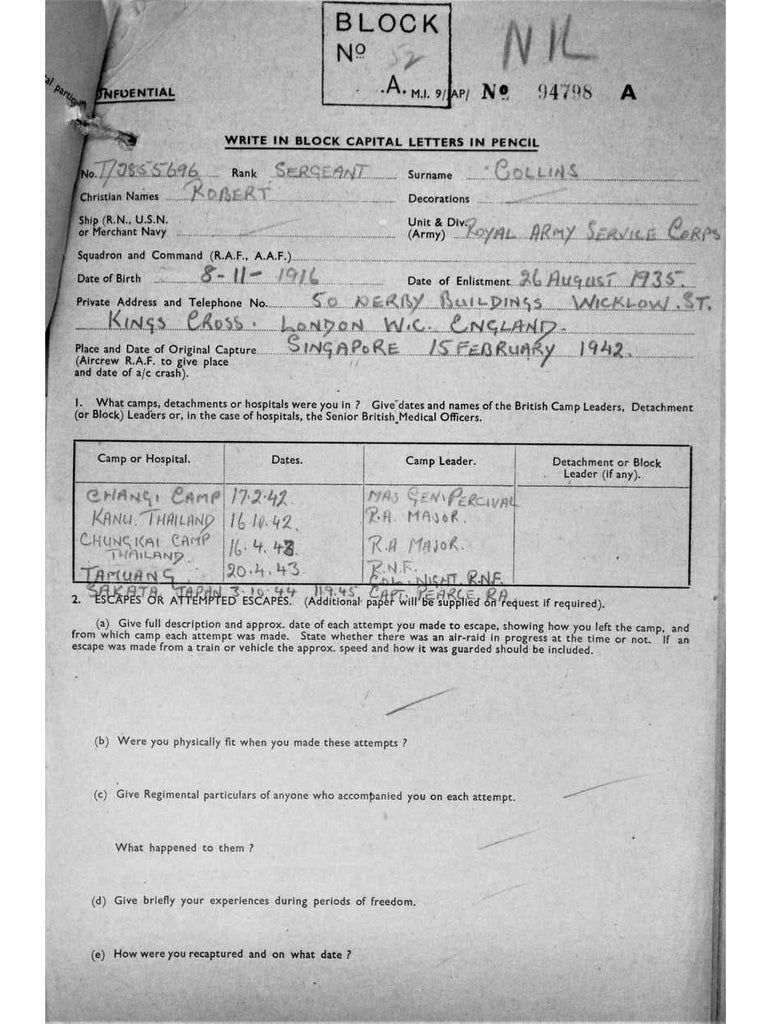 BLOCK
Nº 52
A.
NIL
al partic
ONFIDENTIAL
M.I. 9/JAP/ Nº 94798 A
WRITE IN BLOCK CAPITAL LETTERS IN PENCIL
No. T/ Rank SERGEANT Surname COLLINS
Christian Names ROBERT Decorations
Ship (R.N., U.S.N. or Merchant Navy
Unit & Div. (Army) ROYAL ARMY SERVICE CORPS
Squadron and Command (R.A.F., A.A.F.)
Date of Birth 8-11-1916 Date of Enlistment 26 AUGUST 1935.
Private Address and Telephone No. 50 DERBY BUILDINGS WICKLOW. ST.
KINGS CROSS. LONDON W.C. ENGLAND.
Place and Date of Original Capture SINGAPORE 15 FEBRUARY 1942.
(Aircrew R.A.F. to give place
and date of a/c crash).
1. What camps, detachments or hospitals were you in ? Give dates and names of the British Camp Leaders, Detachment
(or Block) Leaders or, in the case of hospitals, the Senior British Medical Officers.
Camp or Hospital. Dates. Camp Leader. Detachment or Block
Leader (if any).
CHANGI CAMP 17.2.42 MAJ GEN. PERCIVAL
KANU. THAILAND 16.10.42. R.A. MAJOR.
CHUNGKAI CAMP
THAILAND. 16.4.43 R.A MAJOR.
TAMUANG 20.4.43 R.N.F.
COL. NIGHT R.N.F.
SAKATA JAPAN 3-10-44 11.9.45 CAPT. PEARCE RA
2. ESCAPES OR ATTEMPTED ESCAPES. (Additional paper will be supplied on request if required).
(a) Give full description and approx. date of each attempt you made to escape, showing how you left the camp, and
from which camp each attempt was made. State whether there was an air-raid in progress at the time or not. If an
escape was made from a train or vehicle the approx. speed and how it was guarded should be included.
(b) Were you physically fit when you made these attempts ?
(c) Give Regimental particulars of anyone who accompanied you on each attempt.
What happened to them ?
(d) Give briefly your experiences during periods of freedom.
(e) How were you recaptured and on what date ?